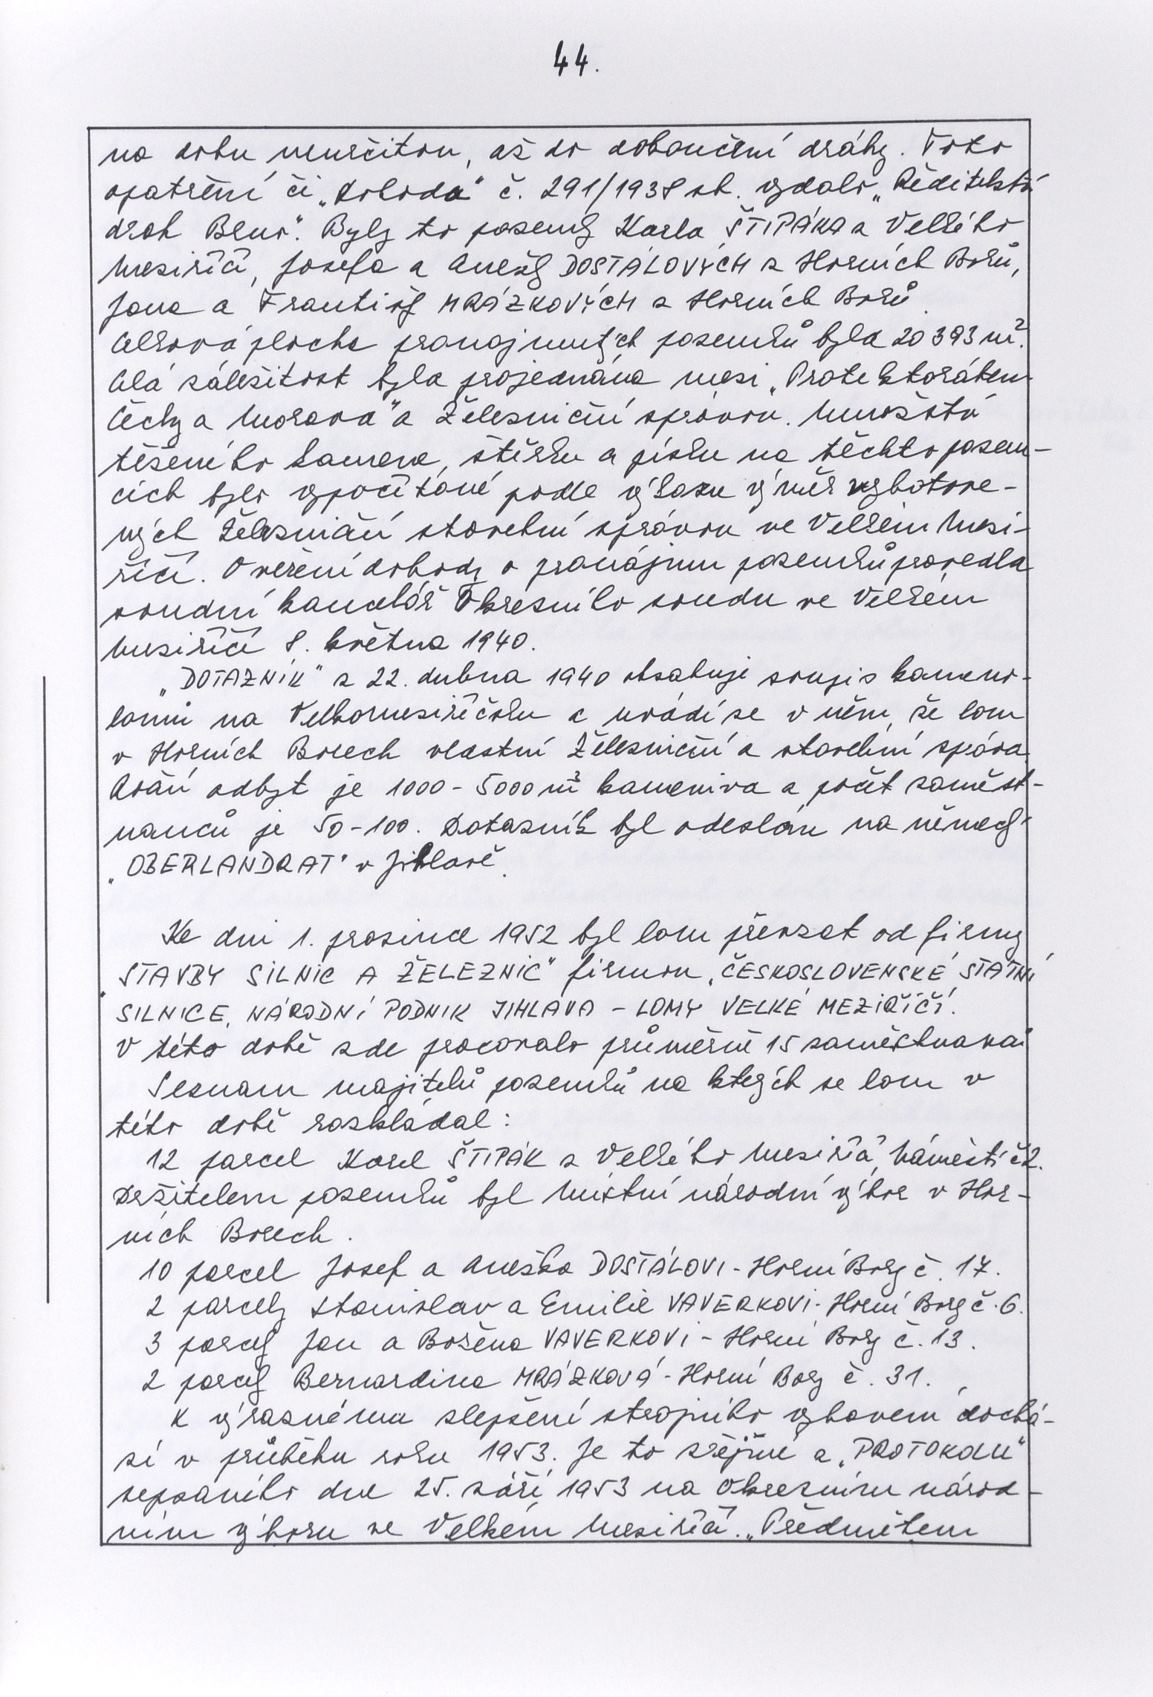 44.
na dobu neurčitou, až do dokončení dráhy. Toto
opatření či „Dohoda" č. 291/1938 sb. vydalo „Ředitelství
drah Brno". Byly to pozemky Karla ŠTIPÁKA z Velkého
Meziříčí, Josefa a Anežky DOSTÁLOVÝCH z Horních Borů,
Jana a Františky MRÁZKOVÝCH z Horních Borů.
Celková plocha pronajmutých pozemků byla 20 393 m².
Celá záležitost byla projednána mezi „Protektorátem
Čechy a Morava" a Železniční správou. Množství
těženého kamene, štěrku a písku na těchto pozem-
cích bylo vypočítané podle výkazu výměr vyhotove-
ných Železniční stavební správou ve Velkém Mezi-
říčí. Ověření dohody o pronájmu pozemků provedla
soudní kancelář Okresního soudu ve Velkém
Meziříčí 8. května 1940.
„DOTAZNÍK" z 22. dubna 1940 obsahuje soupis kameno-
lomů na Velkomeziříčsku a uvádí se v něm, že lom
v Horních Borech vlastní Železniční a stavební správa.
Roční odbyt je 1000 - 5000 m³ kameniva a počet zaměst-
nanců je 50-100. Dotazník byl odeslán na německý
„OBERLANDRAT" v Jihlavě.
Ke dni 1. prosince 1952 byl lom převzat od firmy
„STAVBY SILNIC A ŽELEZNIC" firmou „ČESKOSLOVENSKÉ STÁTNÍ
SILNICE, NÁRODNÍ PODNIK JIHLAVA - LOMY VELKÉ MEZIŘÍČÍ.
V této době zde pracovalo průměrně 15 zaměstnanců
Seznam majitelů pozemků na kterých se lom v
této době rozkládal:
12 parcel Karel ŠTIPÁK z Velkého Meziříčí, Náměstí č.
Držitelem pozemků byl Místní národní výbor v Hor-
ních Borech.
10 parcel Josef a Anežka DOSTÁLOVI - Horní Bory č. 17.
2 parcely Stanislav a Emilie VAVERKOVI - Horní Bory č. 6.
3 parcely Jan a Božena VAVERKOVI - Horní Bory č. 13.
2 parcely Bernardina MRÁZKOVÁ - Horní Bory č. 31.
K výraznému zlepšení strojního vybavení dochá-
zí v průběhu roku 1953. Je to zřejmé z „PROTOKOLU"
sepsaného dne 25. září 1953 na Okresním národ-
ním výboru ve Velkém Meziříčí. „Předmětem